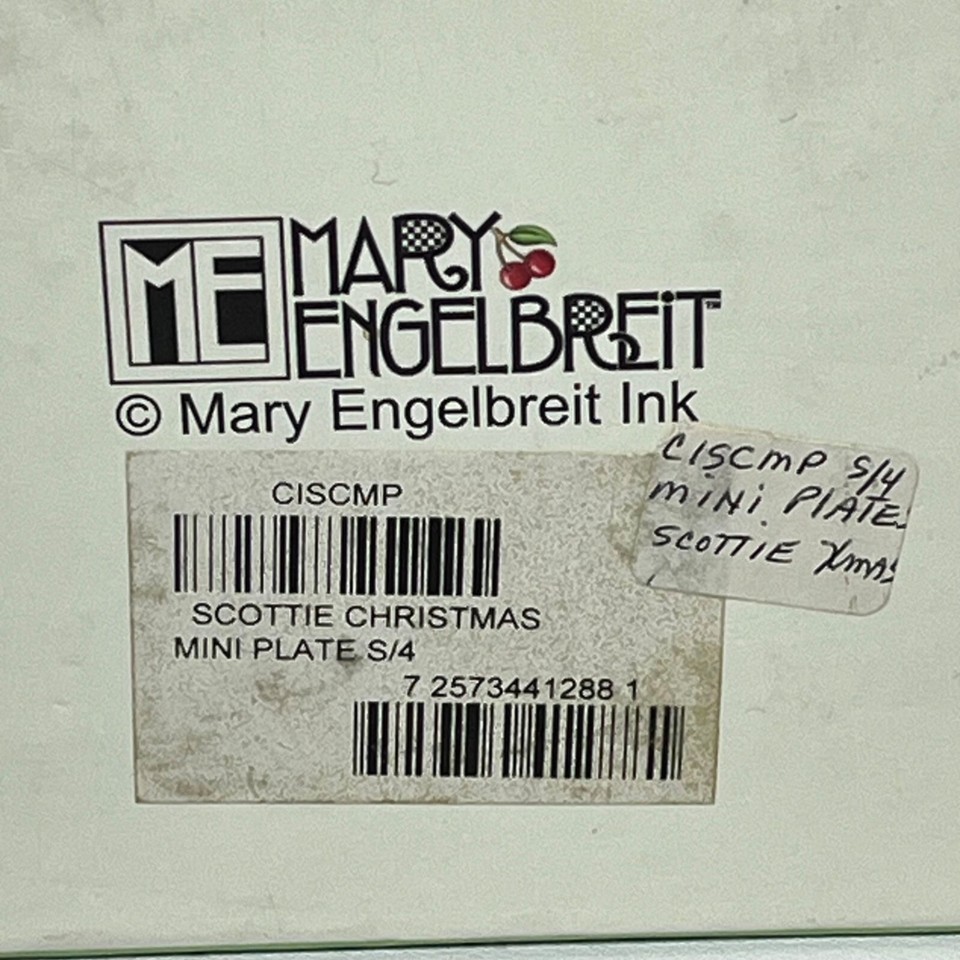 ME
MARY
ENGELBREIT™
© Mary Engelbreit Ink
CISCMP
SCOTTIE CHRISTMAS
MINI PLATE S/4
7 2573441288 1
CISCMP S/4
MINI PLATES
SCOTTIE Xmas